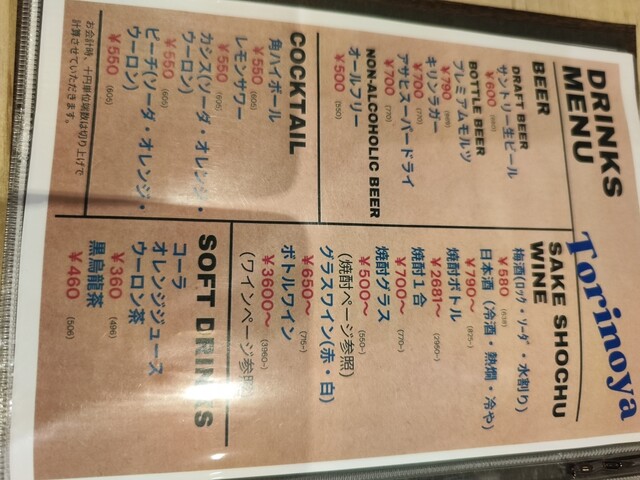 DRINKS
MENU
Torinoya
BEER
DRAFT BEER
サントリー生ビール
￥600 (660)
BOTTLE BEER
プレミアムモルツ
￥790 (869)
キリンラガー
￥700 (770)
アサヒスーパードライ
￥700 (770)
NON-ALCOHOLIC BEER
オールフリー
￥500 (550)
COCKTAIL
角ハイボール
￥550 (605)
レモンサワー
￥550 (605)
カシス(ソーダ・オレンジ・
ウーロン)
￥550 (605)
ピーチ(ソーダ・オレンジ・
ウーロン)
￥550 (605)
お会計時、十円単位端数は切り上げで
計算させていただきます。
SAKE SHOCHU
WINE
梅酒(ロック・ソーダ・水割り)
￥580 (638)
日本酒 (冷酒・熱燗・冷や)
￥790〜
焼酎ボトル
￥2681〜 (2950~)
焼酎1合
￥700〜 (770~)
焼酎グラス
￥500〜 (550~)
(焼酎ページ参照)
グラスワイン(赤・白)
￥650〜 (715~)
ボトルワイン
￥3600〜 (3960~)
(ワインページ参照)
SOFT DRINKS
コーラ
オレンジジュース
ウーロン茶
￥360 (496)
黒烏龍茶
￥460 (506)